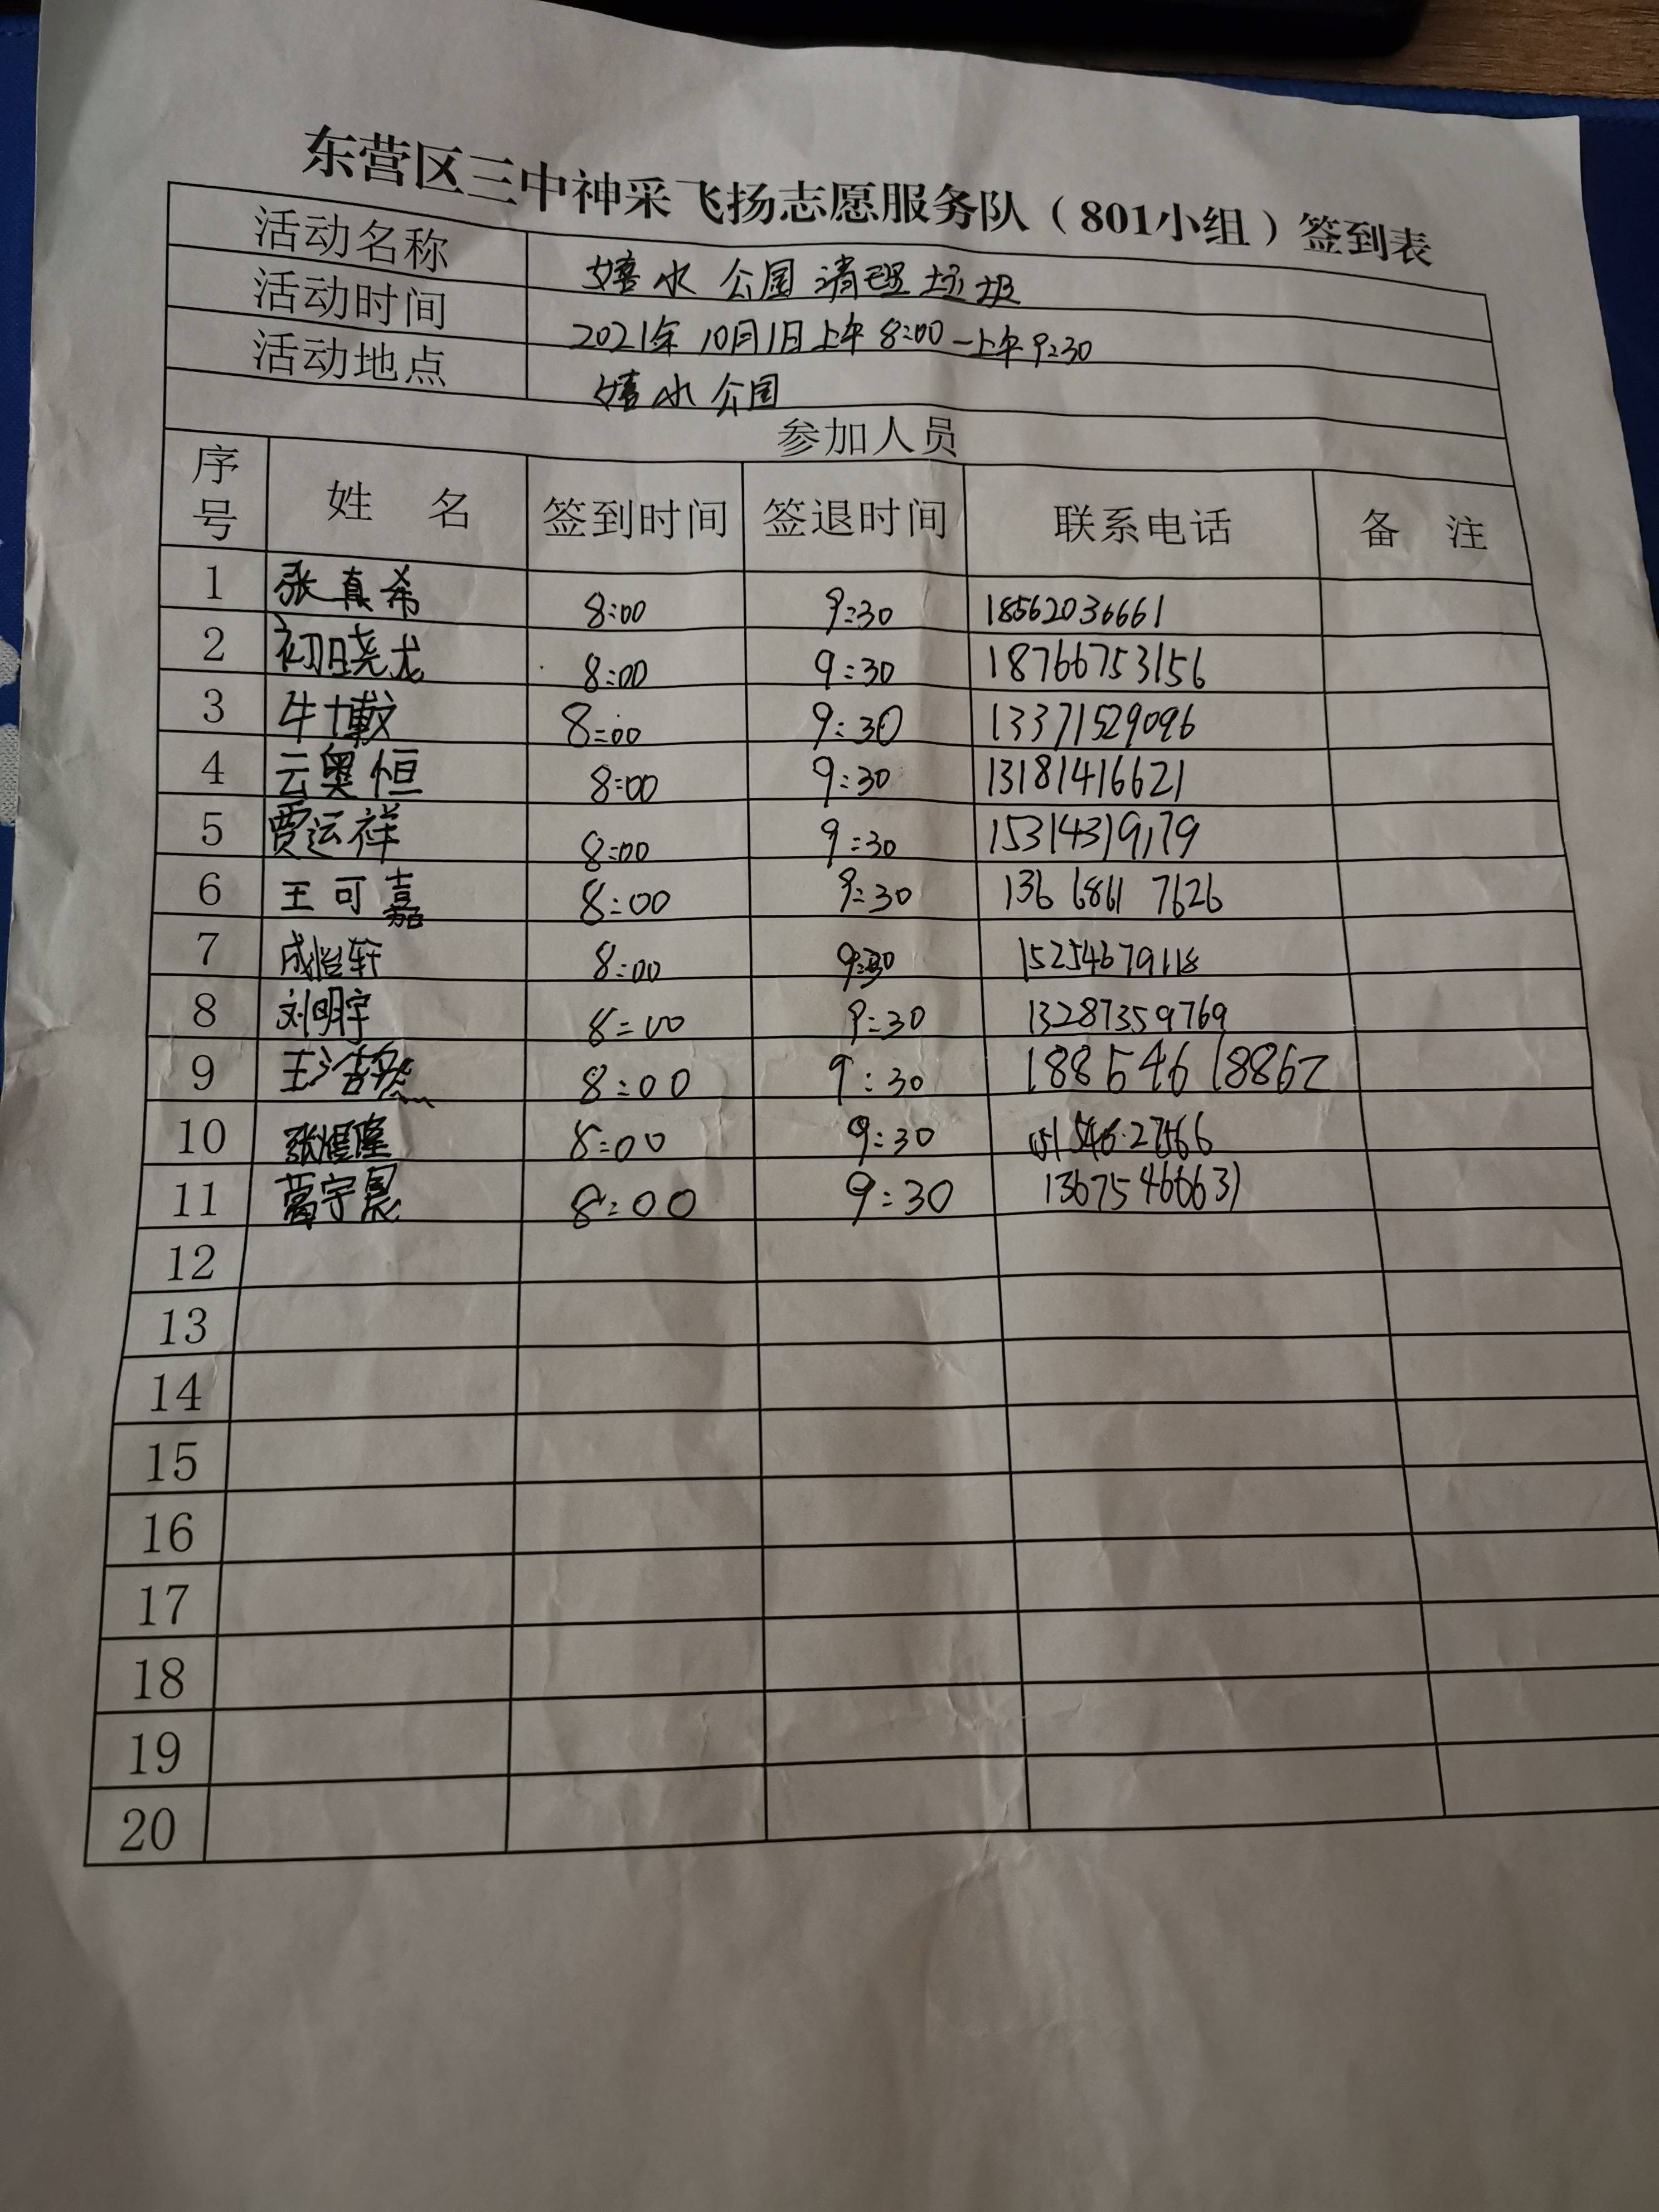 东营区三中神采飞扬志愿服务队（801小组）签到表
活动名称 嬉水公园清理垃圾
活动时间 2021年10月1日上午8:00—上午9:30
活动地点 嬉水公园
参加人员
序号 姓名 签到时间 签退时间 联系电话 备注
1 张真希 8:00 9:30 18562036661
2 初晓龙 8:00 9:30 18766753156
3 牛博文 8:00 9:30 13371529096
4 云奥恒 8:00 9:30 13181416621
5 贾运祥 8:00 9:30 15314319179
6 王可嘉 8:00 9:30 136 6861 7626
7 成怡轩 8:00 9:30 15254679118
8 刘明宇 8:00 9:30 13287359769
9 王浩然 8:00 9:30 18854618862
10 张煜隆 8:00 9:30
11 葛宇晨 8:00 9:30 13675466631
12
13
14
15
16
17
18
19
20